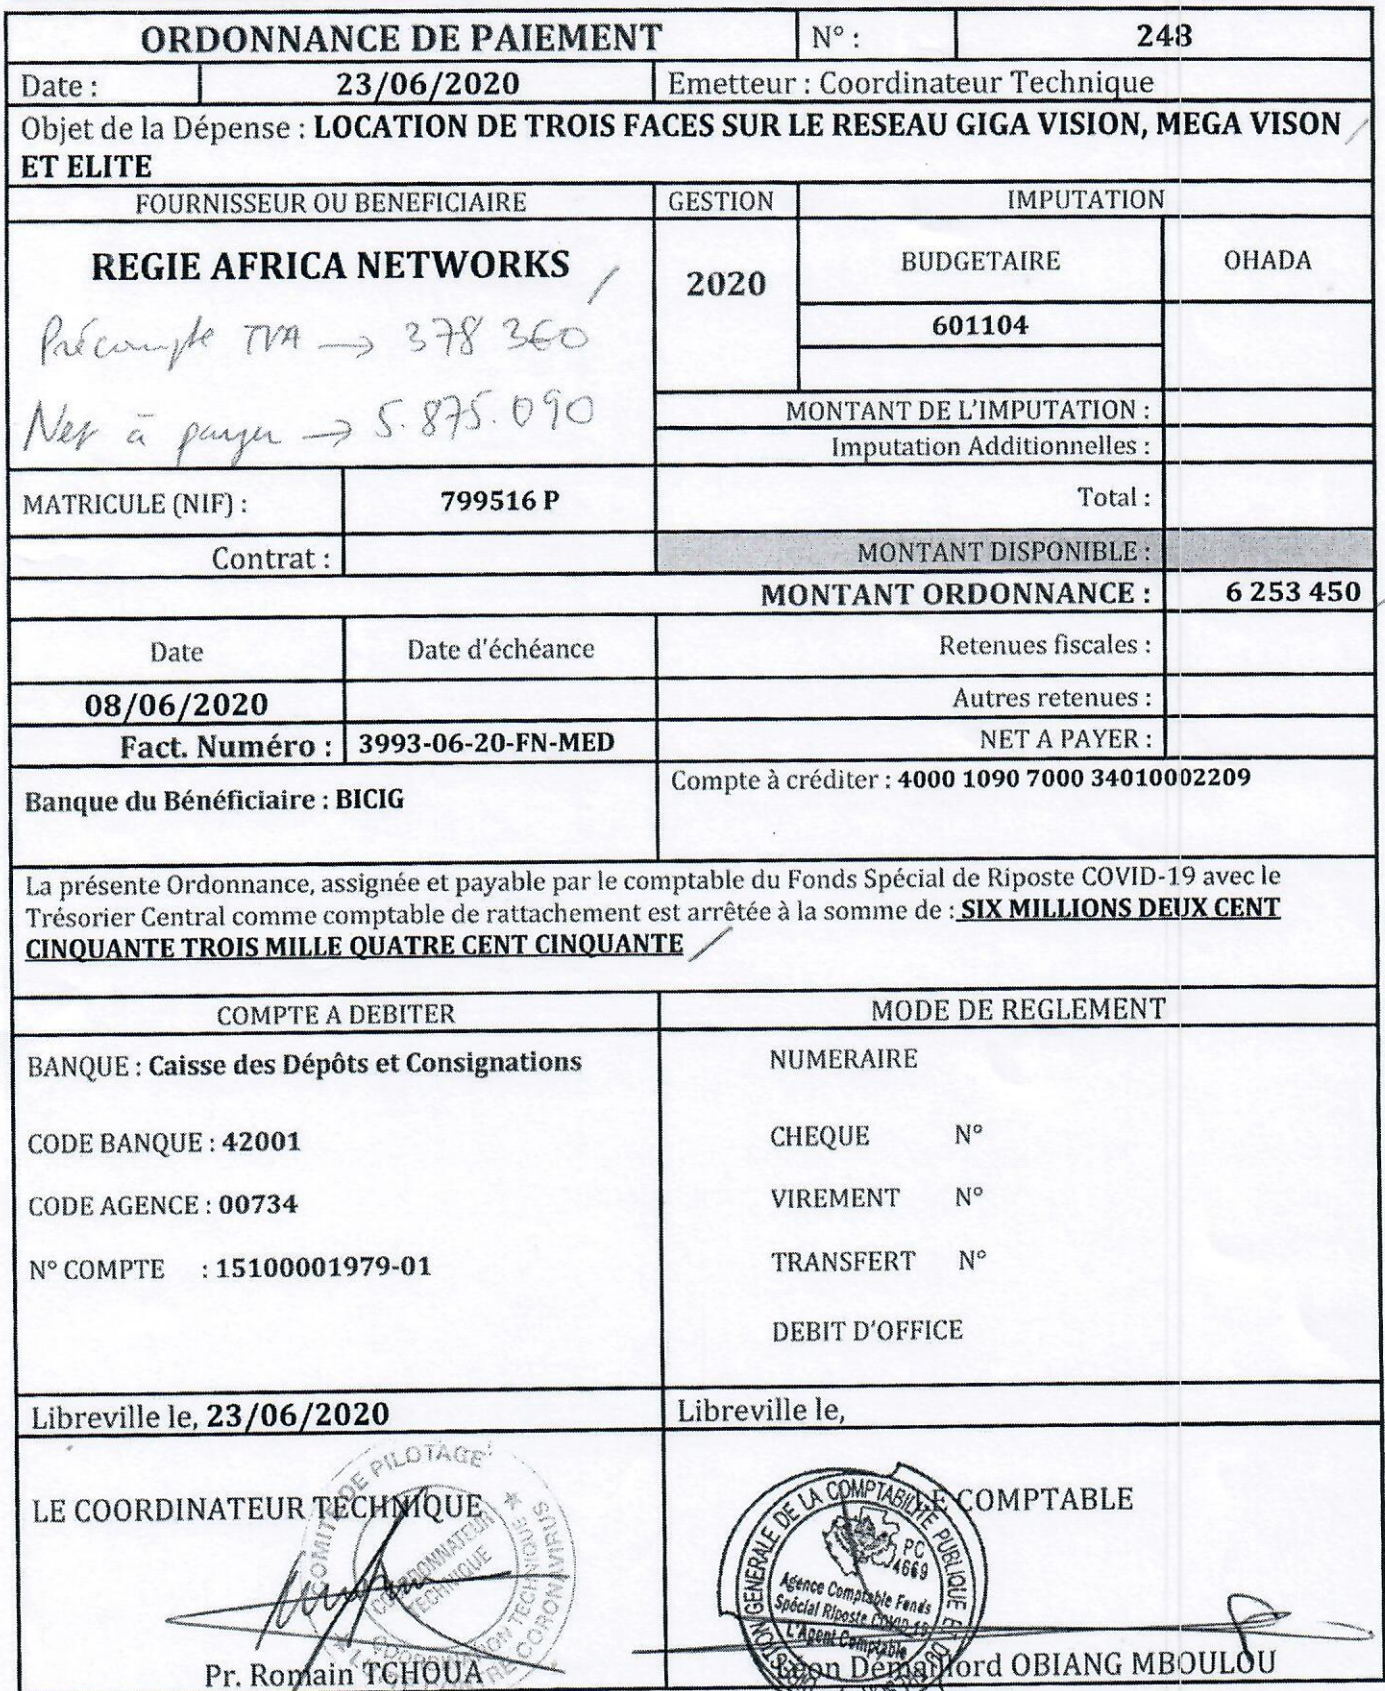 ORDONNANCE DE PAIEMENT N° : 248
Date : 23/06/2020 Emetteur : Coordinateur Technique
Objet de la Dépense : LOCATION DE TROIS FACES SUR LE RESEAU GIGA VISION, MEGA VISON
ET ELITE
FOURNISSEUR OU BENEFICIAIRE GESTION IMPUTATION
REGIE AFRICA NETWORKS 2020 BUDGETAIRE OHADA
601104
Précompte TVA → 378 360
Net à payer → 5.875.090
MONTANT DE L'IMPUTATION :
Imputation Additionnelles :
MATRICULE (NIF) : 799516 P Total :
Contrat : MONTANT DISPONIBLE :
MONTANT ORDONNANCE : 6 253 450
Date Date d'échéance Retenues fiscales :
08/06/2020 Autres retenues :
Fact. Numéro : 3993-06-20-FN-MED NET A PAYER :
Banque du Bénéficiaire : BICIG Compte à créditer : 4000 1090 7000 34010002209
La présente Ordonnance, assignée et payable par le comptable du Fonds Spécial de Riposte COVID-19 avec le
Trésorier Central comme comptable de rattachement est arrêtée à la somme de : SIX MILLIONS DEUX CENT
CINQUANTE TROIS MILLE QUATRE CENT CINQUANTE
COMPTE A DEBITER MODE DE REGLEMENT
BANQUE : Caisse des Dépôts et Consignations NUMERAIRE
CODE BANQUE : 42001 CHEQUE N°
CODE AGENCE : 00734 VIREMENT N°
N° COMPTE : 15100001979-01 TRANSFERT N°
DEBIT D'OFFICE
Libreville le, 23/06/2020 Libreville le,
LE COORDINATEUR TECHNIQUE LE COMPTABLE
COMITE DE PILOTAGE
COORDONNATEUR
TECHNIQUE
GENERALE DE LA COMPTABILITE PUBLIQUE
PC
4669
Agence Comptable Fonds
Spécial Riposte COVID-19
L'Agent Comptable
Pr. Romain TCHOUA Léon Demaillord OBIANG MBOULOU